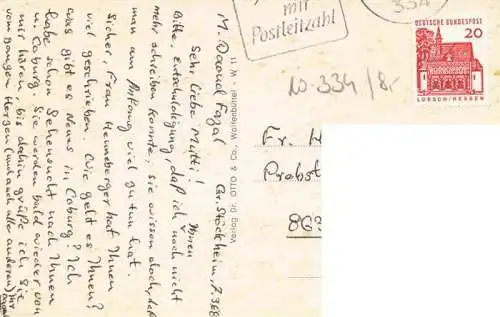 M. Daoud Fazal
Gr. Stöckheim, 7.3.68
Sehr liebe Mutti! Ihnen
Bitte, Entschuldigung, daß ich noch nicht
mehr schreiben konnte, sie wissen doch, daß
man am Anfang viel zu tun hat.
Sicher, Frau Henneberger hat Ihnen
viel geschrieben. Wie geht es Ihnen?
was gibt es Neues in Coburg? Ich
habe schon Sehensucht nach Ihnen
u. Coburg. Sie werden bald wieder von
mir hören, bis dahin grüße ich Sie
vom ganzen Herzen (und auch alle anderen) Ihr
Verlag Dr. OTTO & Co., Wolfenbüttel W 11
mit
Postleitzahl
334
DEUTSCHE BUNDESPOST
20
LORSCH/HESSEN
10-334/8,-
Fr. H
Probst
863